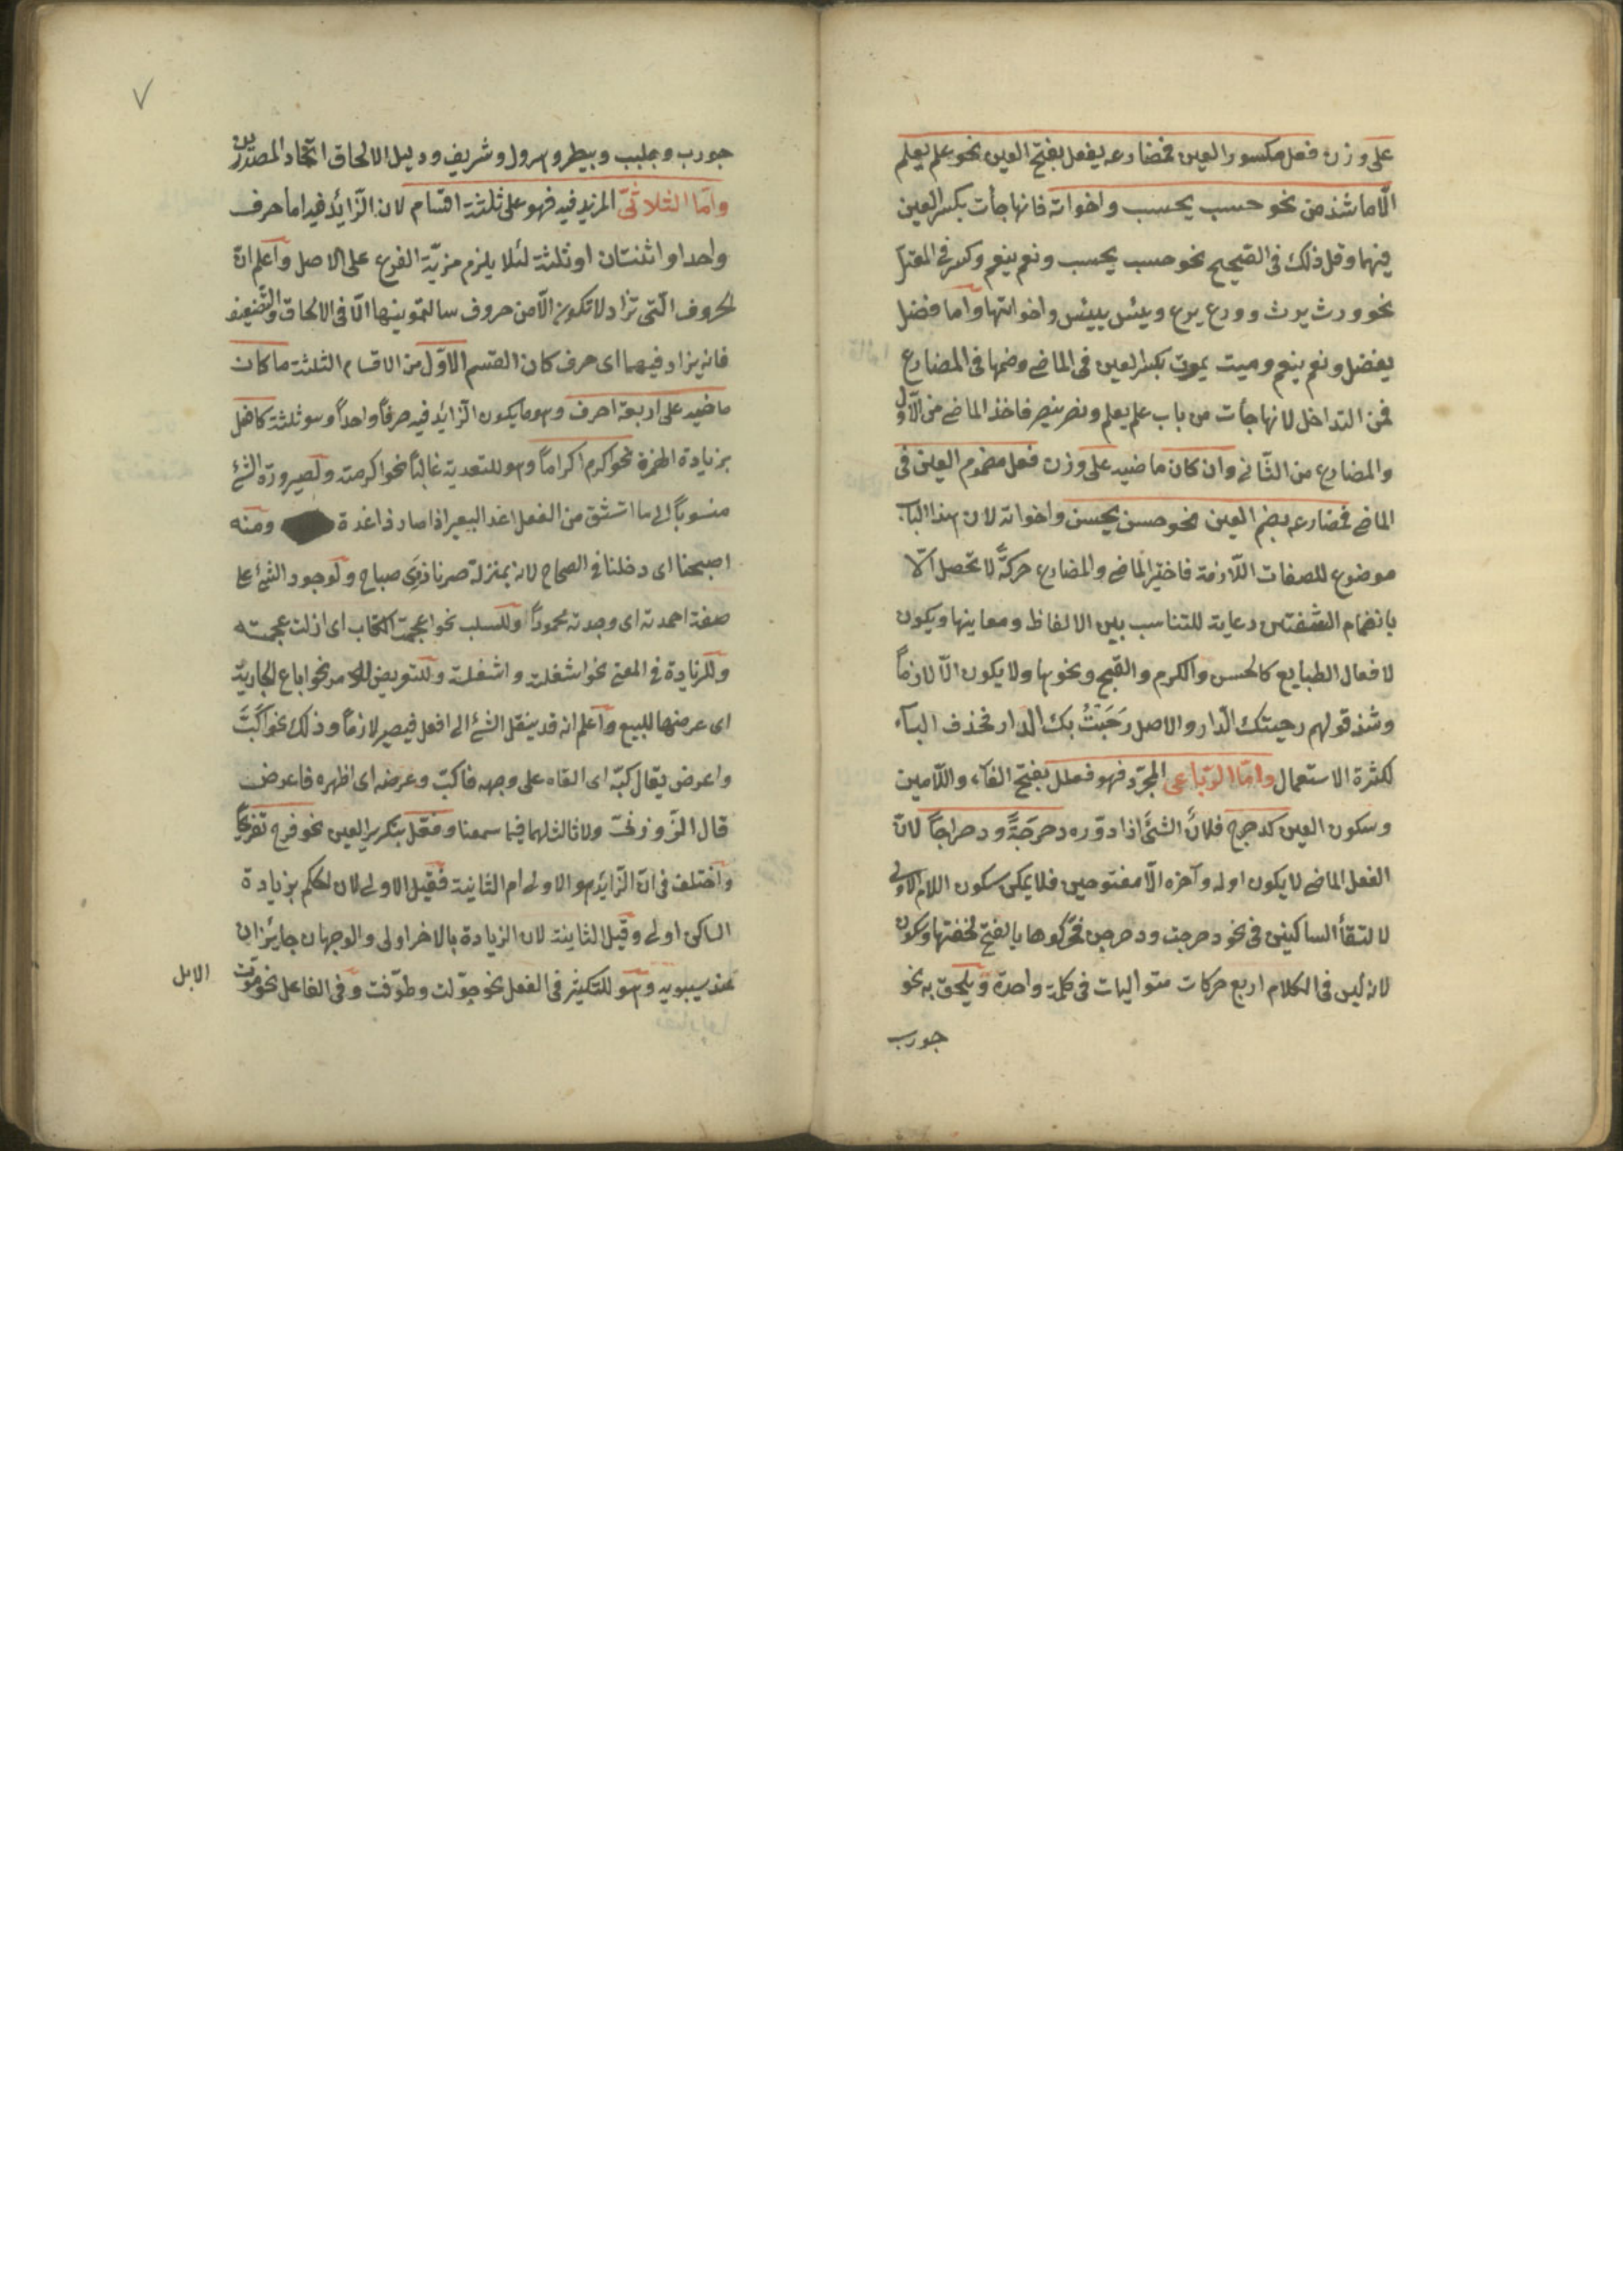 على وزن فعل مكسور العين فمضارعه يفعل بفتح العين نحو علم يعلم
الّا ما شذ من نحو حسب يحسب واخواته فانها جأت بكسر العين
فيهما وقل ذلك فى الصّحيح نحو حسب يحسب ونعم ينعم وكثر فى المعتل
نحو ورث يرث وورع يرع ويئس ييئس واخواتها وأما فضل
يفضل ونعم ينعم وميت يموت بكسر العين فى الماضى وضمها فى المضارع
فمن التداخل لانها جأت من باب علم يعلم ونصر ينصر فاخذ الماضى من الأوّل
والمضارع من الثّانى وان كان ماضيه على وزن فعل مضموم العين فى
الماضى فمضارعه بضم العين نحو حسن يحسن واخواته لان هذا الباب
موضوع للصفات اللّازمة فاختير للماضى والمضارع حركةٌ لا تحصل الّا
بانضمام الشفتين رعاية للتناسب بين الالفاظ ومعاينها ويكون
لافعال الطبايع كالحسن والكرم والقبح ونحوها ولا يكون الّا لازماً
وشذ قولهم رحبتك الدّار والاصل رَحَبَتْ بك الدّار فحذف البآء
لكثرة الاستعمال وامّا الرّباعى المجرّد فهو فعلل بفتح الفآء واللّامين
وسكون العين كدحرج فلانٌ الشئَ اذا دوّره دحرجَةً ودحراجاً لانّ
الفعل الماضى لا يكون اوله وآخره الّا مفتوحين فلا يمكن سكون اللام الاولى
لالتقأ الساكنين فى نحو دحرجت ودحرجن فحرّكوها بالفتح لخفتها وسكون
لانه ليس فى الكلام اربع حركات متواليات فى كلمة واحدة ويلحق به نحو
جورب
٧
جورب وجلبب وبيطر وهرول وشريف ودليل الالحاق اتّحاد المصدرين
وامّا الثلاثىّ المزيد فيه فهو على ثلثة اقسام لان الزّائد فيه اما حرف
واحد او اثنتان او ثلثة لئلا يلزم مزيّة الفرع على الاصل وأعلم انّ
الحروف الّتى تزاد لا تكون الّا من حروف سالتمونيها الّا فى الالحاق والتّضعيف
فانه يزاد فيهما اى حرف كان القسم الاوّل من الاقسام الثلثة ما كان
ماضيه على اربعة احرف وهو ما يكون الزّائد فيه حرفاً واحداً وهو ثلثة كافعل
بزيادة الهمزة نحو اكرم اكراماً وهو للتعدية غالباً نحو اكرمته ولصيرورة الشئ
منسوباً الى ما اشتق من الفعل اغد البعير اذا صار ذا غدة ومنه
اصبحنا اى دخلنا فى الصباح لانه بمنزلة صرنا ذوى صباح ولوجود الشئ على
صفة احمدته اى وجدته محموداً وللسلب نحو اعجمت الكتاب اى ازلت عجمته
وللزيادة فى المعنى نحو اشغلته واشغلت وللتعويض للامر نحو اباع الجارية
اى عرضها للبيع وأعلم انه قد ينقل الشئ الى افعل فيصير لازماً وذلك نحو اكبَّ
واعرض يقال كبّه اى القاه على وجهه فاكبّ وعرضه اى اظهره فاعرض
قال الزّوزنىّ ولا ثالث لهما فيما سمعنا وفعّل بتكرير العين نحو فرح تفريحاً
وأختلف فى انّ الزّائد هو الاولى ام الثانية فقيل الاولى لان الحكم بزيادة
الساكن اولى وقيل الثانية لان الزيادة بالاخر اولى والوجهان جايزان
عند سيبويه وهو للتكثير فى الفعل نحو جوّلت وطوّفت وفى الفاعل نحو موّتت
الابل